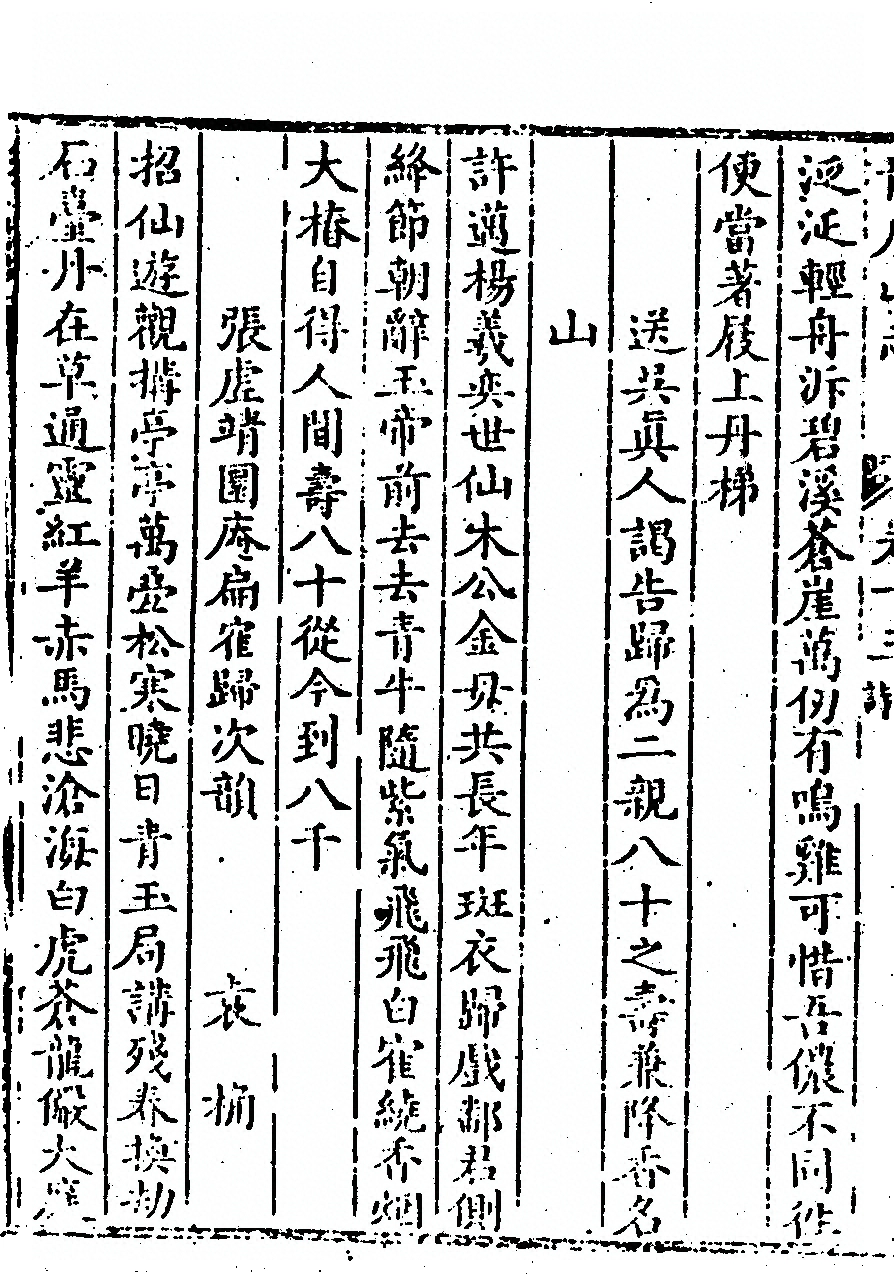 卷十三 詩
泛泛輕舟泝碧溪蒼崖萬仞有鳴雞可惜吾儂不同徃
便當著屐上丹梯
送吴眞人謁告歸為二親八十之壽兼降香名
山
許邁楊羲奕世仙木公金母共長年斑衣歸戲郗君側
絳節朝辭玉帝前去去青牛隨紫氣飛飛白隺繞香烟
大椿自得人間壽八十從今到八千
張虛靖圜庵扁隺歸次韻 袁桷
招仙遊觀搆亭亭萬壑松寒曉日青玉局講殘春換劫
石臺丹在草通靈紅羊赤馬悲滄海白虎蒼龍儼大庭